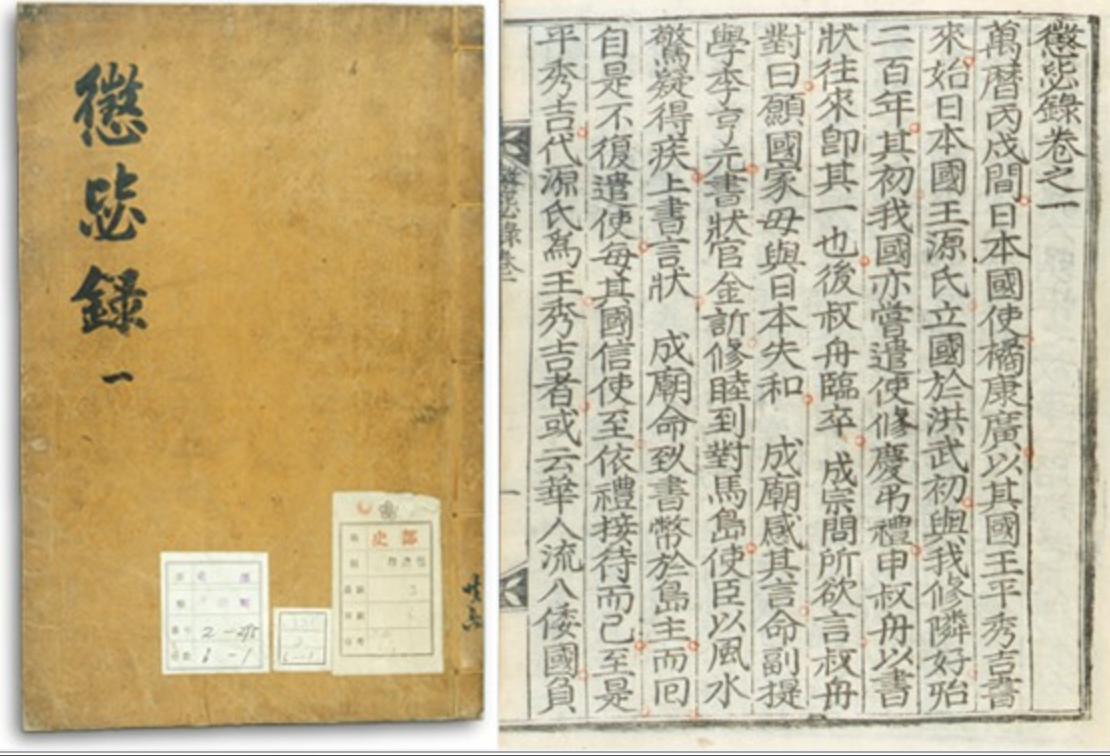 懲毖錄
一
史部
懲毖錄卷之一
萬曆丙戌間日本國使橘康廣以其國王平秀吉書
來始日本國王源氏立國於洪武初與我修隣好殆
二百年其初我國亦嘗遣使修慶弔禮申叔舟以書
狀往來卽其一也後叔舟臨卒 成宗問所欲言叔舟
對曰願國家毋與日本失和 成廟感其言命副提
學李亨元書狀官金訢修睦到對馬島使臣以風水
驚疑得疾上書言狀 成廟命致書幣於島主而回
自是不復遣使每其國信使至依禮接待而已至是
平秀吉代源氏爲王秀吉者或云華人流入倭國負